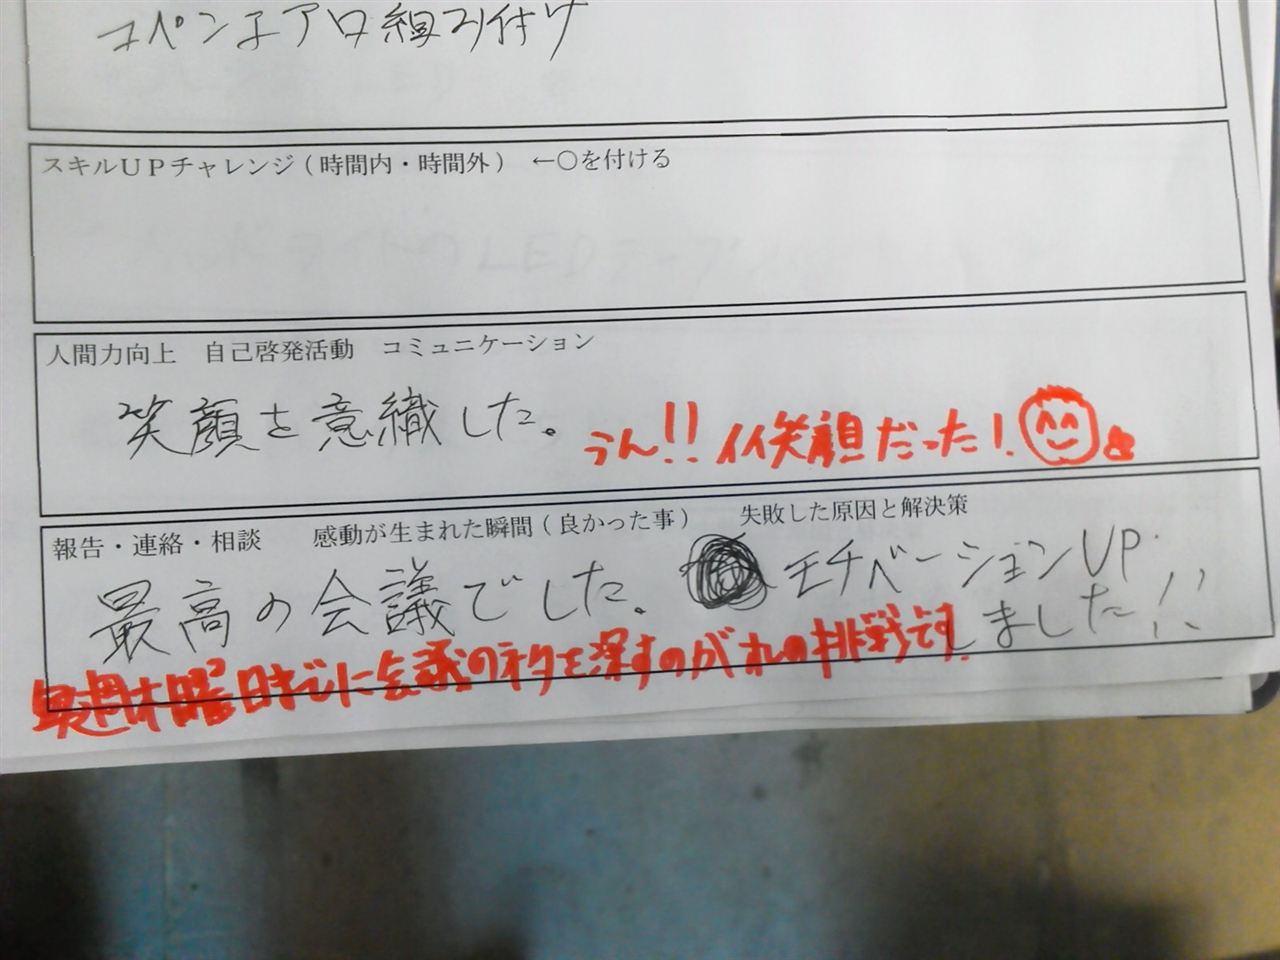 コペンエアロ組み付け
スキルUPチャレンジ(時間内・時間外) ←○を付ける
人間力向上 自己啓発活動 コミュニケーション
笑顔を意識した。
うん!! イイ笑顔だった!
報告・連絡・相談 感動が生まれた瞬間(良かった事) 失敗した原因と解決策
最高の会議でした。 モチベーションUP
しました!!
毎週木曜日までに会議のネタを探すのがオレの挑戦です.